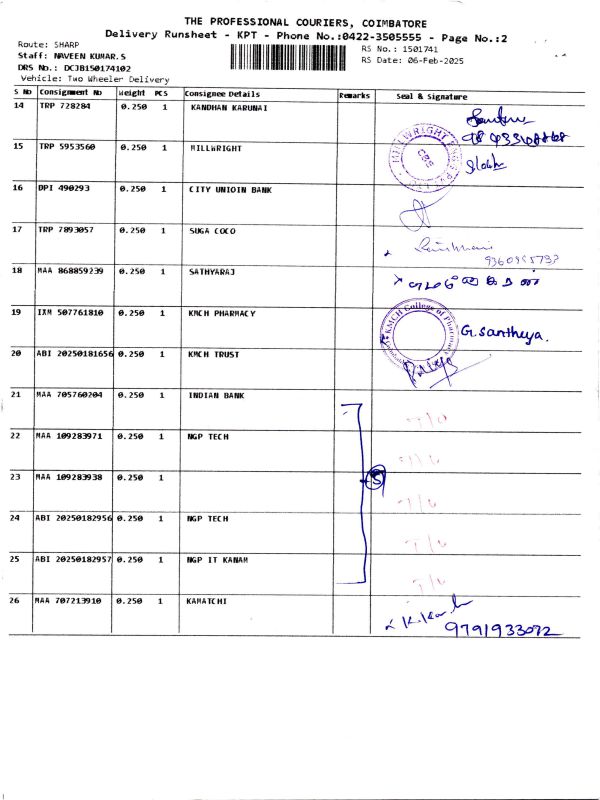 THE PROFESSIONAL COURIERS, COIMBATORE
Delivery Runsheet - KPT - Phone No.:0422-3505555 - Page No.:2
Route: SHARP
RS No.: 1501741
Staff: NAVEEN KUMAR.S
RS Date: 06-Feb-2025
DRS No.: DCJB150174102
Vehicle: Two Wheeler Delivery
S No Consignment No Weight PCS Consignee Details Remarks Seal & Signature
14 TRP 728284 0.250 1 KANDHAN KARUNAI
15 TRP 5953560 0.250 1 MILLWRIGHT
16 DPI 490293 0.250 1 CITY UNIOIN BANK
17 TRP 7893057 0.250 1 SUGA COCO
18 MAA 868859239 0.250 1 SATHYARAJ
19 IXM 507761810 0.250 1 KMCH PHARMACY G. Santhiya.
KMCH College of Pharmacy
20 ABI 20250181656 0.250 1 KMCH TRUST
21 MAA 705760204 0.250 1 INDIAN BANK
22 MAA 109283971 0.250 1 NGP TECH
23 MAA 109283938 0.250 1 5
24 ABI 20250182956 0.250 1 NGP TECH
25 ABI 20250182957 0.250 1 NGP IT KANAM
26 MAA 707213910 0.250 1 KAMATCHI
9791933072